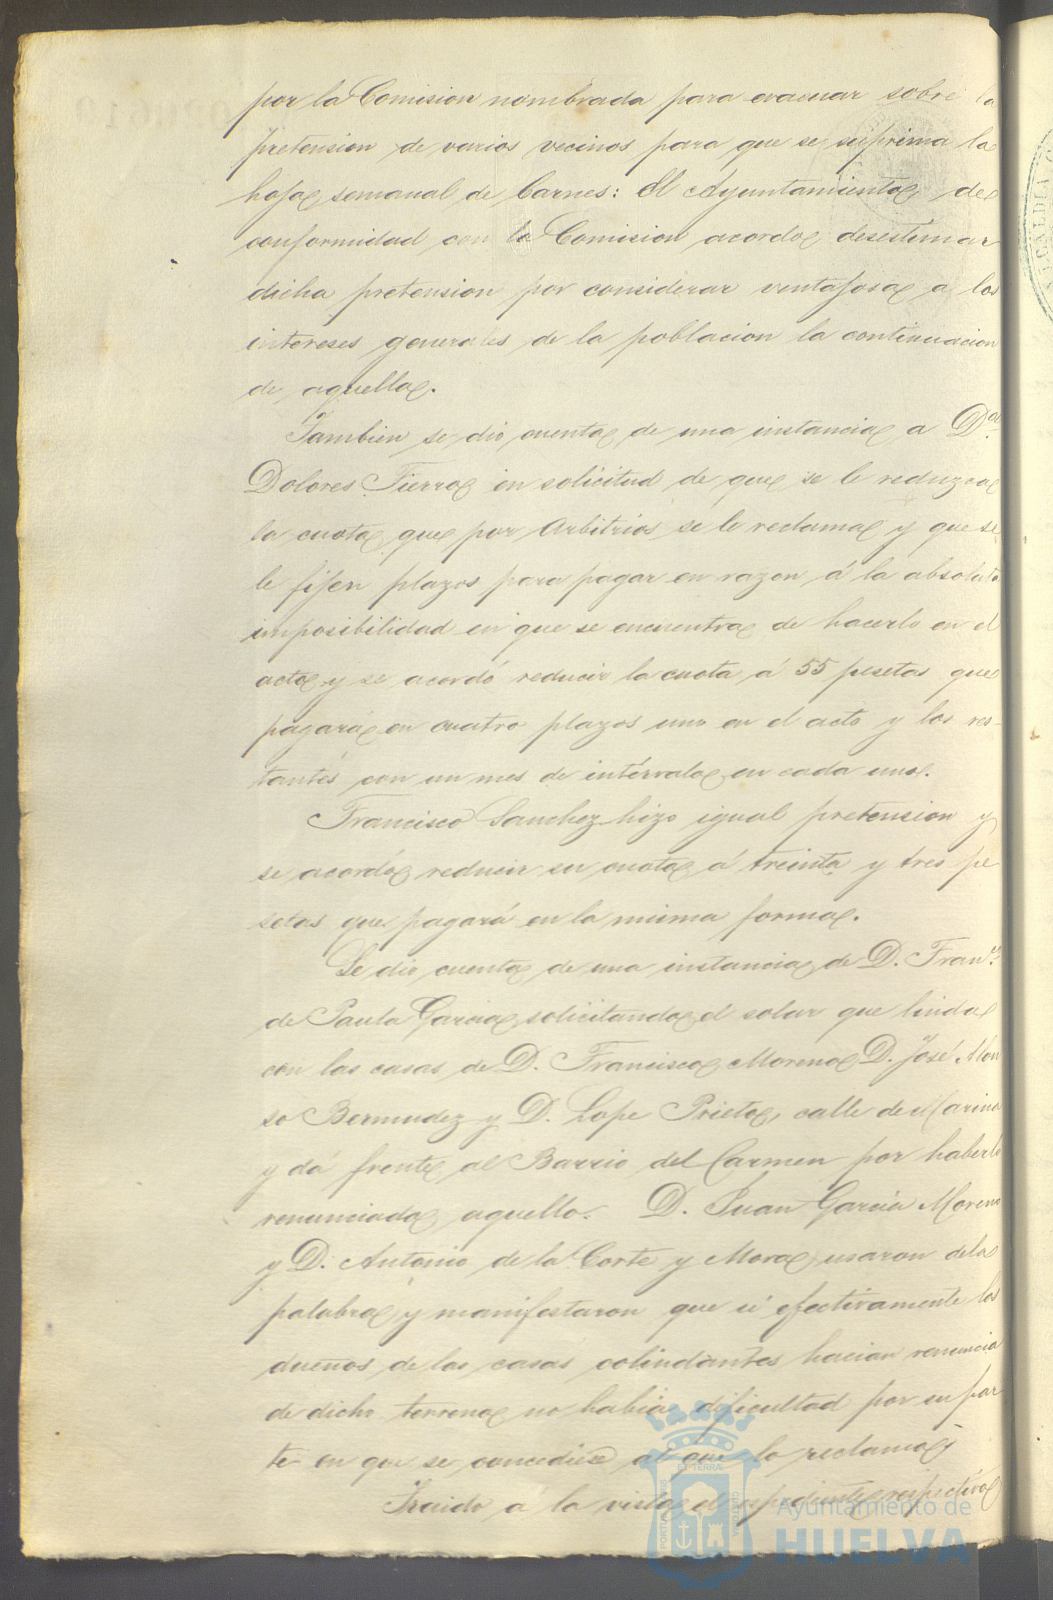 por la Comision nombrada para evacuar sobre la
pretension de varios vecinos para que se suprima la
hoja semanal de Carnes: El Ayuntamiento de
conformidad con la Comision acordo desestimar
dicha pretension por considerar ventajosa a los
intereses generales de la poblacion la continuacion
de aquella.
Tambien se dio cuenta de una instancia a D.ª
Dolores Tierra en solicitud de que se le reduzca
la cuota que por Arbitrios se le reclama y que se
le fijen plazos para pagar en razon á la absoluta
imposibilidad en que se encuentra de hacerlo en el
acto y se acordó reducir la cuota á 55 pesetas que
pagará en cuatro plazos uno en el acto y los res-
tantes con un mes de intérvalo en cada uno.
Francisco Sanchez hizo igual pretension y
se acordó reducir su cuota á treinta y tres pe
setas que pagará en la misma forma.
Se dio cuenta de una instancia de D. Franco
de Paula Garcia solicitando el solar que linda
con las casas de D. Francisco Moreno D. José Alon
so Bermudez y D. Lope Prieto, calle de Marina
y dá frente al Barrio del Carmen por haberlo
renunciado aquello. D. Juan Garcia Moreno
y D. Antonio de la Corte y Mora usaron de la
palabra y manifestaron que si efectivamente los
dueños de las casas colindantes hacian renuncia
de dicho terreno no habia dificultad por su par
te en que se concediese al que lo reclama y
Traido á la vista el expediente respectivo
Ayuntamiento de
HUELVA